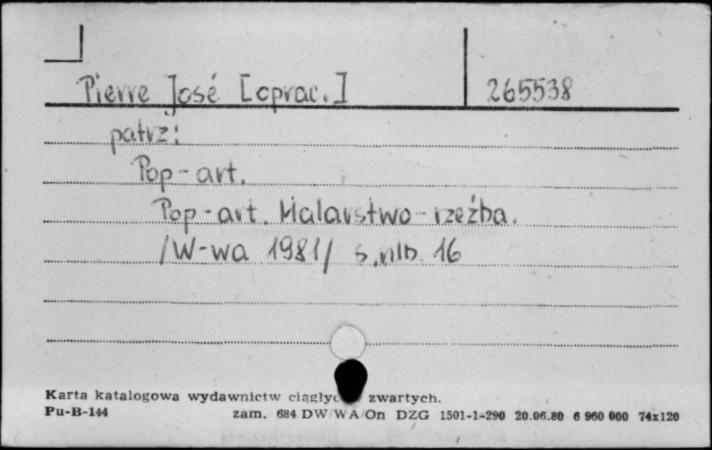 Pierre José [oprac.] 265538
patrz:
Pop-art.
Pop-art. Malarstwo-rzeźba.
/W-wa 1981/ s.nlb. 16
Karta katalogowa wydawnictw zwartych.
Pu-B-144 zam. 684 DW WA/On DZG 1501-1-290 20.06.80 6 960 000 74x120